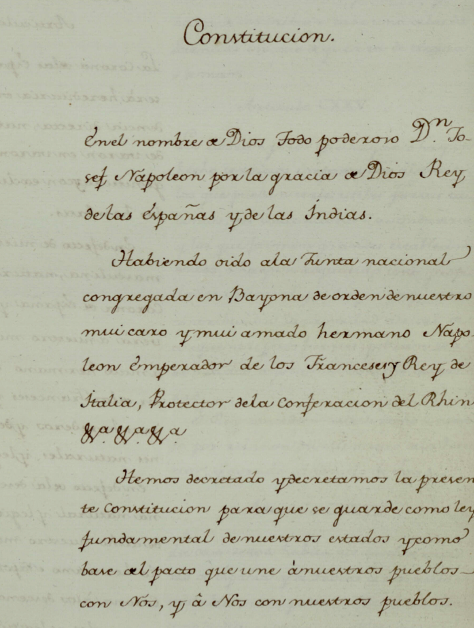 Constitucion.
En el nombre de Dios Todo poderoso Dn. Jo-
sef Napoleon por la gracia de Dios Rey
de las Españas y de las Indias.
Habiendo oido ala Junta nacional
congregada en Bayona de orden de nuestro
mui caro y mui amado hermano Napo-
leon Emperador de los Franceses y Rey de
Italia, Protector dela Conferacion del Rhin
&a. &a. &a.
Hemos decretado y decretamos la presen
te Constitucion para que se guarde como ley
fundamental de nuestros estados y como
base del pacto que une á nuestros pueblos
con Nos, y á Nos con nuestros pueblos.